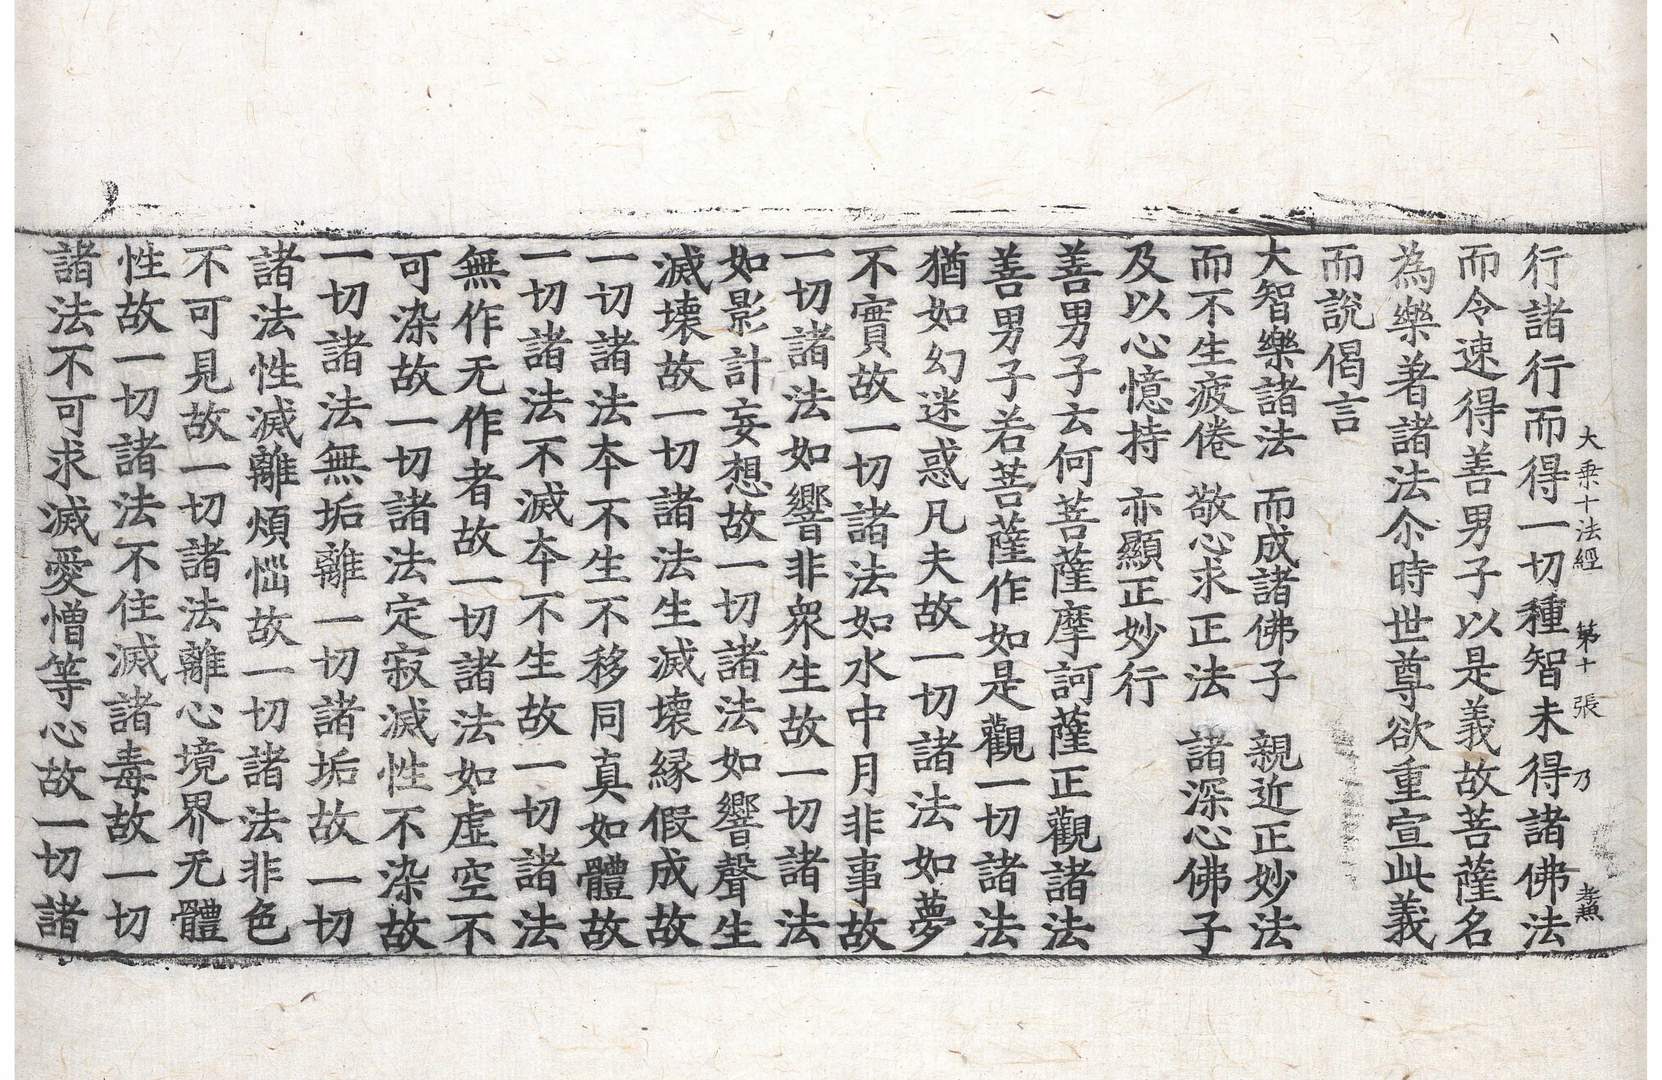 大乗十法經　第十張　乃　
行諸行而得一切種智未得諸佛法
而令速得善男子以是義故菩薩名
為樂著諸法尒時世尊欲重宣此義
而說偈言
大智樂諸法　而成諸佛子　親近正妙法
而不生疲倦　敬心求正法　諸深心佛子
及以心憶持　亦顯正妙行
善男子云何菩薩摩訶薩正觀諸法
善男子若菩薩作如是觀一切諸法
猶如幻迷惑凡夫故一切諸法如夢
不實故一切諸法如水中月非事故
一切諸法如響非衆生故一切諸法
如影計妄想故一切諸法如響聲生
滅壞故一切諸法生滅壞縁假成故
一切諸法夲不生不移同真如體故
一切諸法不滅夲不生故一切諸法
無作无作者故一切諸法如虛空不
可染故一切諸法定寂滅性不染故
一切諸法無垢離一切諸垢故一切
諸法性滅離煩惱故一切諸法非色
不可見故一切諸法離心境界无體
性故一切諸法不住滅諸毒故一切
諸法不可求滅愛憎等心故一切諸